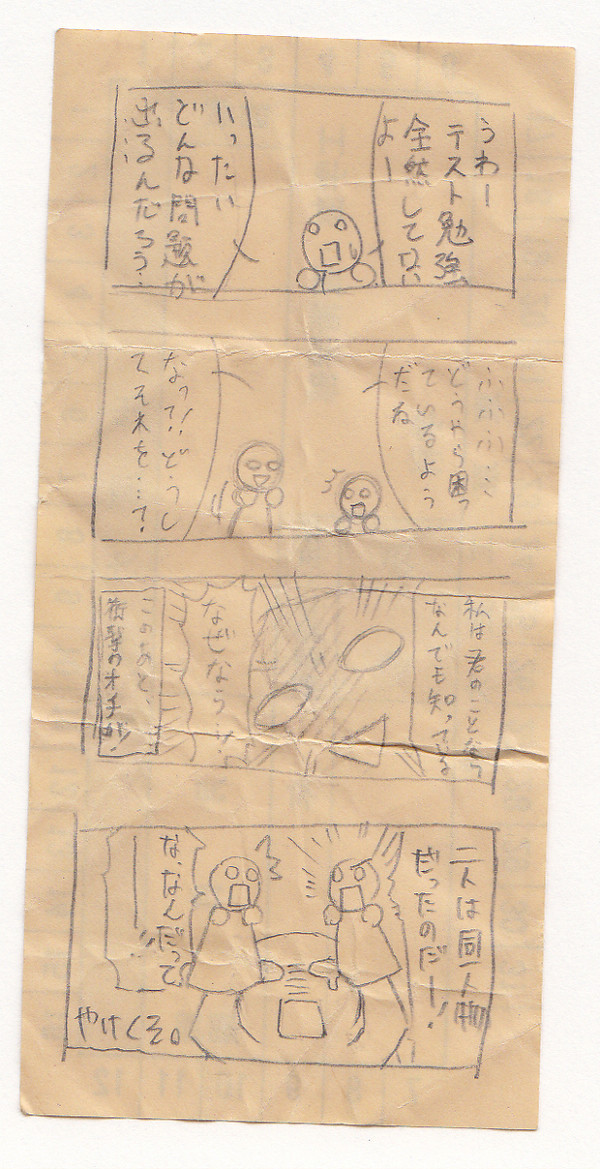 うわー
テスト勉強
全然してない
よー
いったい
どんな問題が
出るんだろう…
ふふふ…
どうやら困っ
ているよう
だね
なっ!!どうし
てそれを…?
私は君のことなら
なんでも知っている
なぜなら!!
このあと、
衝撃のオチが!
二人は同一人物
だったのだー!
な、なんだって
ーー!!
やけくそ。